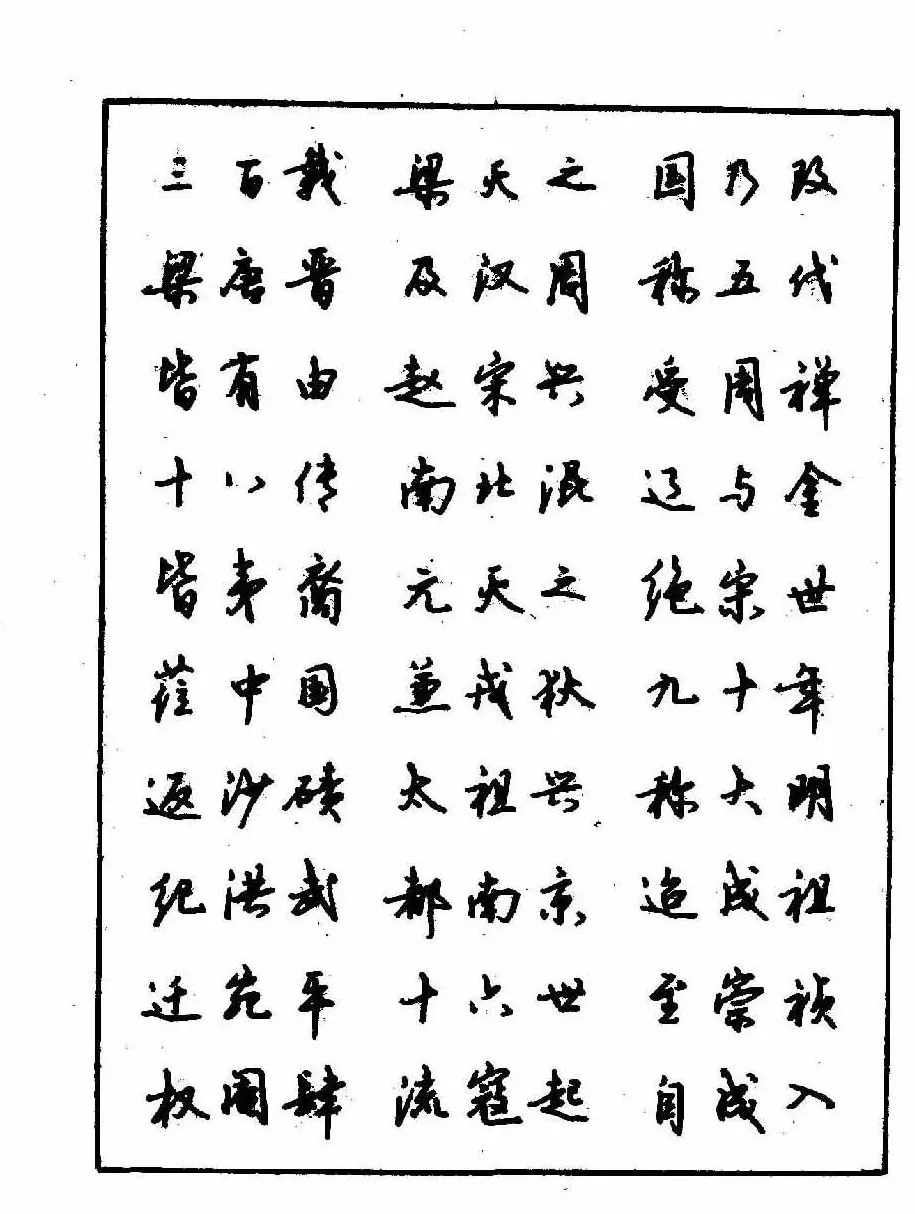 三百载 梁灭之 国乃改
梁唐晋 及汉周 称五代
皆有由 赵宋兴 受周禅
十八传 南北混 辽与金
皆夷裔 元灭之 绝宋世
莅中国 兼戎狄 九十年
返沙碛 太祖兴 称大明
纪洪武 都南京 迨成祖
迁宛平 十六世 至崇祯
权阉肆 流寇起 自成入